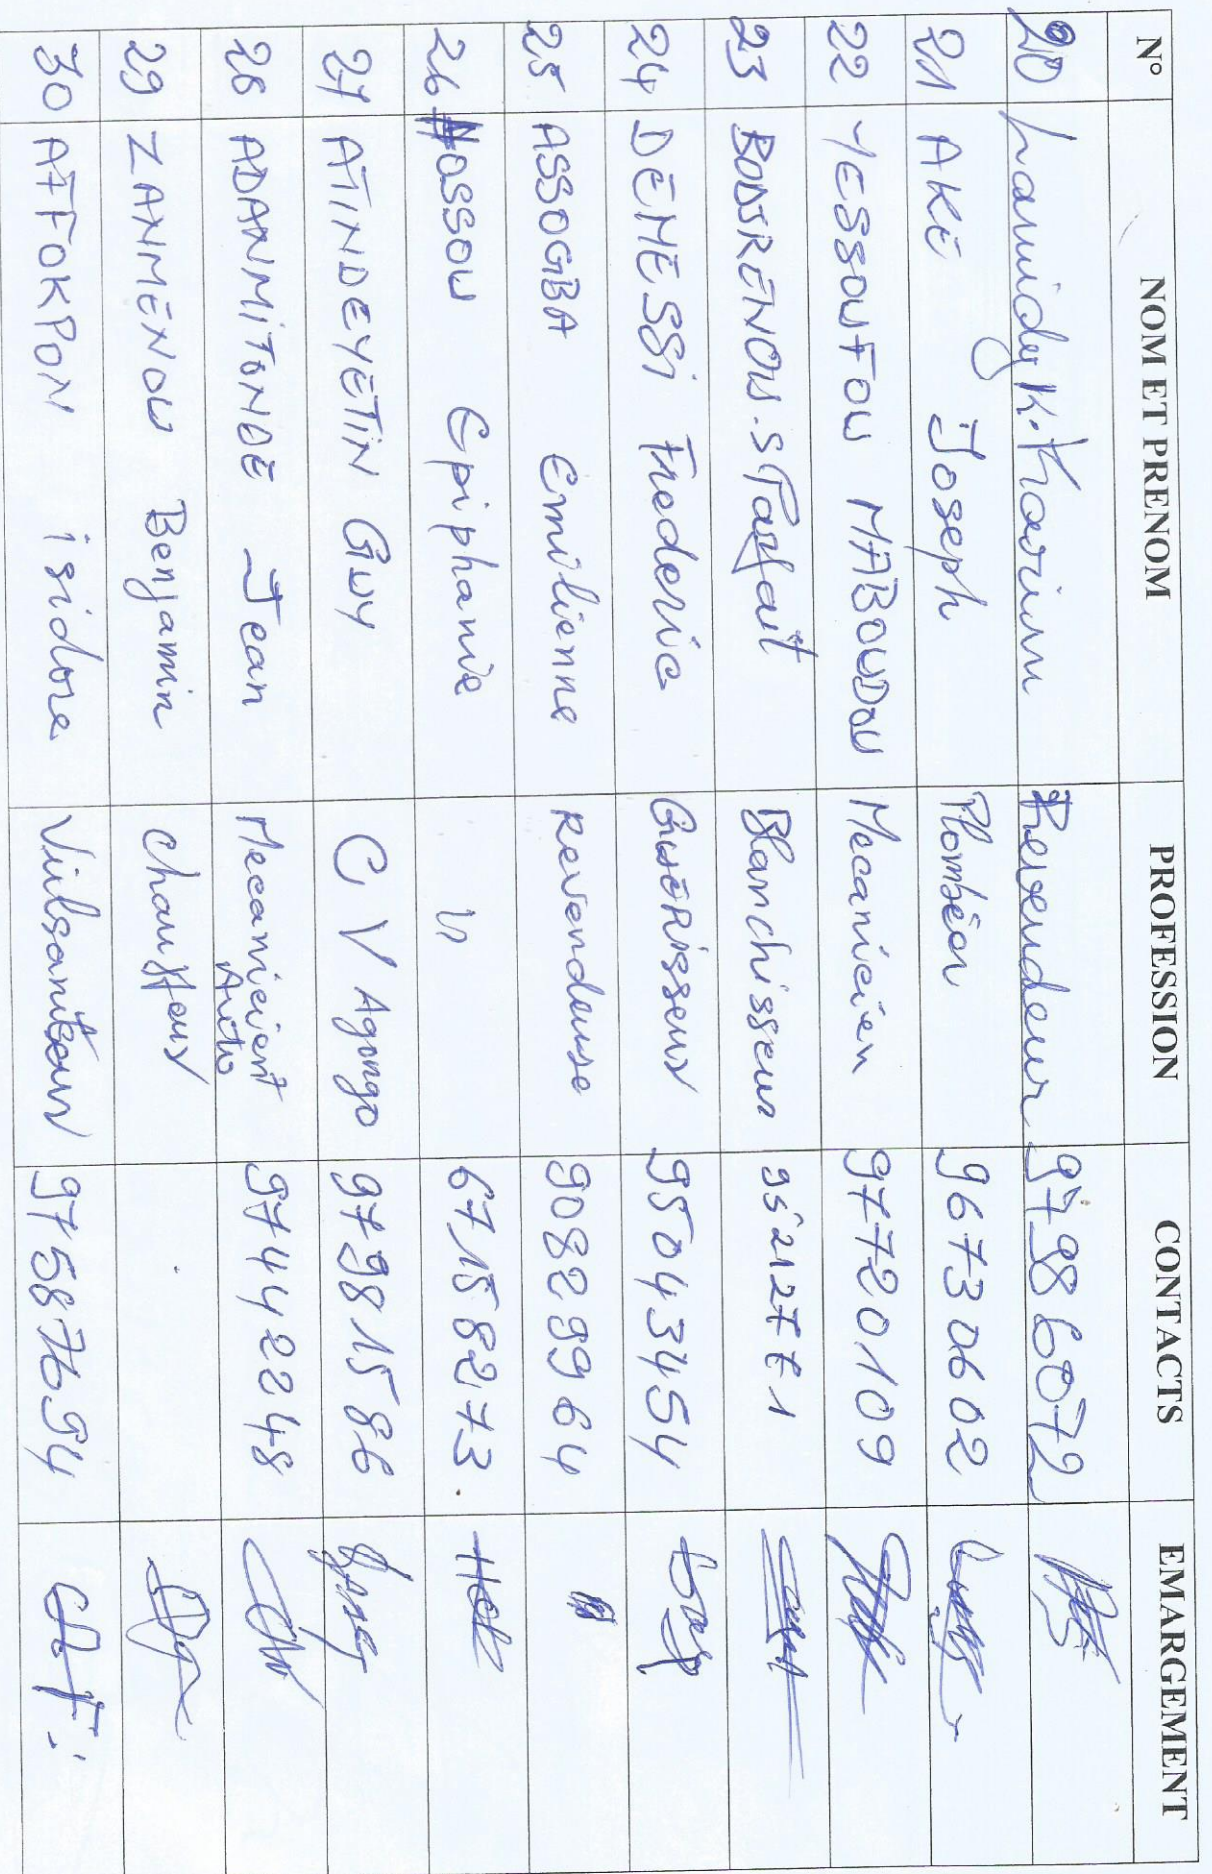 N° NOM ET PRENOM PROFESSION CONTACTS EMARGEMENT
20 Lamidy K. Karimu Revendeur 97986072
21 AKE Joseph Plombéor 96730602
22 YESSOUFOU MABOUDOU Mecanicien 97720109
23 BODJRENOU.S Parfait Blanchisseur 95212771
24 DEHESSi Frederic GuERisseur 95043454
25 ASSOGBA Emilienne Revendeuse 90829964
26 Hossou Epiphanie 67158273.
27 ATiNDEYETiN Guy C V Agongo 97981586
28 ADANMiTONDE Jean Mecanicient Auto 97442248
29 ZANMENOU Benjamin chauffeur
30 AFFOKPON isidore 97587694